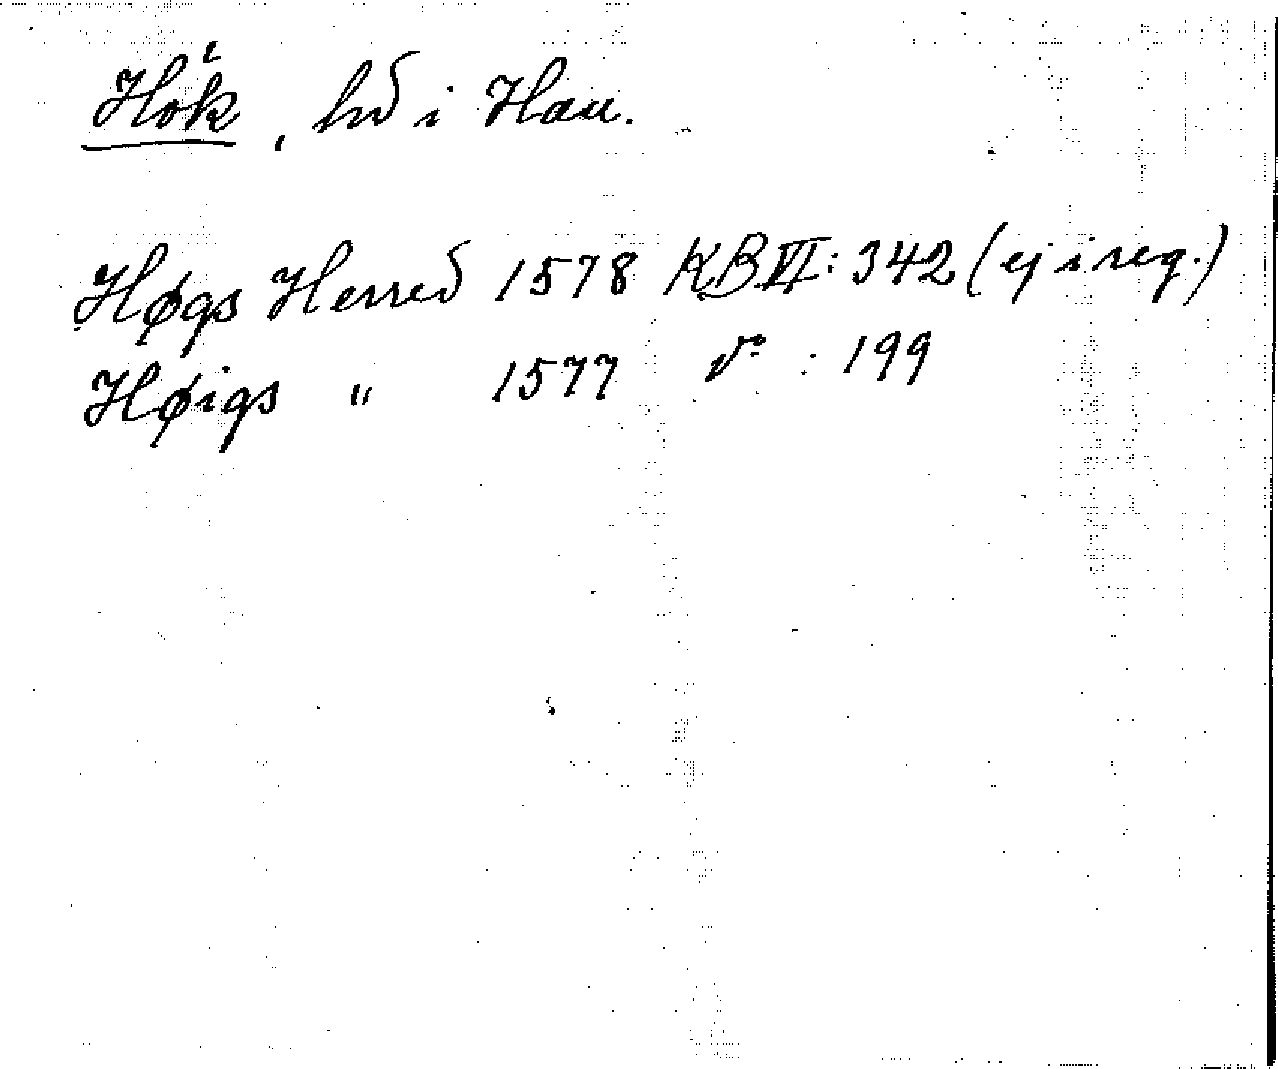 Hök, hd i Hau.
Høgs Herred 1578 KB VI: 342 (ej i reg.)
Høigs " 1577 do : 199